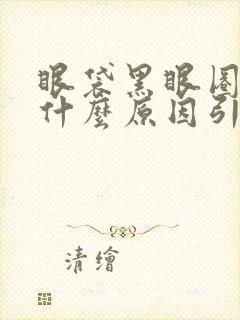 眼袋黑眼圈
什麼原因引
清繪